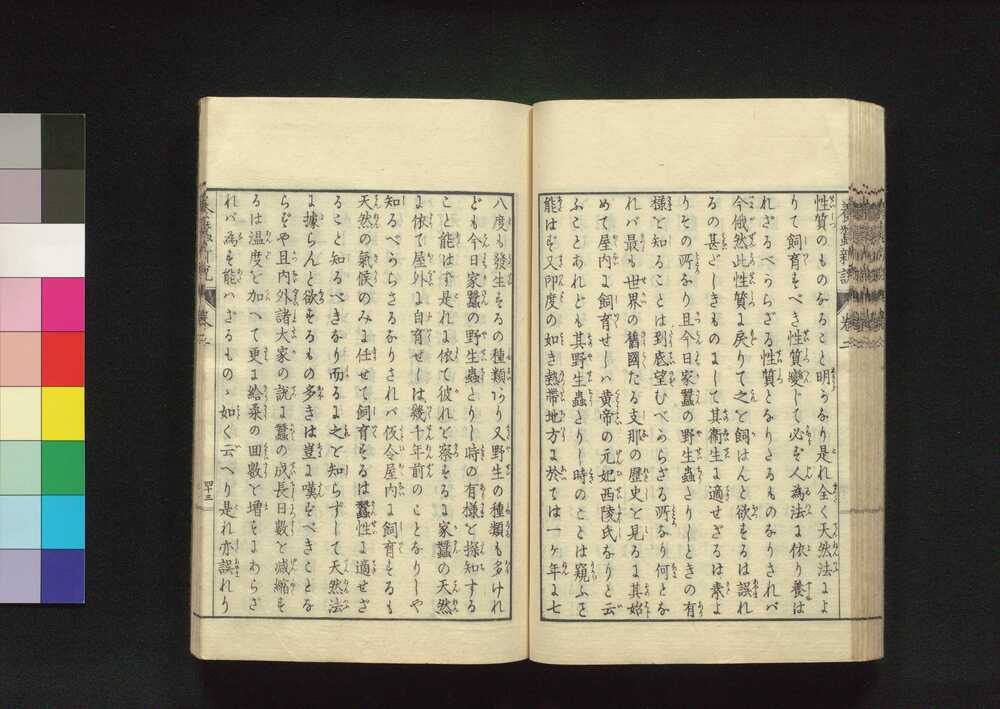 性質のものなること明かなり是れ全く天然法により
りて飼育すべき性質變じて必ず人為法に依り養は
れざるべからざる性質となりたるものなりされバ
今俄然此性質に戻りて之を飼はんと欲するは誤れ
るの甚だしきものにして其衞生に適せざるは素よ
りその所なり且今日家蠶の野生蟲たりしときの有
樣を知ることは到底望むべからざる所なり何とな
れバ最も世界の舊國たる支那の歴史を見るに其始
めて屋内に飼育せしハ黄帝の元妃西陵氏なりと云
ふことあれども其野生蟲たりし時のことは窺ふを
能はず又印度の如き熱帶地方に於ては一ヶ年に七
八度も發生するの種類あり又野生の種類も多けれ
ども今日家蠶の野生蟲たりし時の有樣を探知する
こと能はず是れに依て彼れを察するに家蠶の天然
に依て屋外に自育せしは幾千年前のことなりしや
知るべからざるなりされバ仮令屋内に飼育するも
天然の氣候のみに任せて飼育するは蠶性に適せざ
ること知るべきなり而るに之を知らずして天然法
に據らんと欲するもの多きは豈に嘆ずべきことな
らずや且内外諸大家の説に蠶の成長日數を減縮す
るは温度を加へて更に給桑の回數を増すにあらざ
れバ為す能ハざるものゝ如く云へり是れ亦誤れり
養蠶新説 卷二
四十三